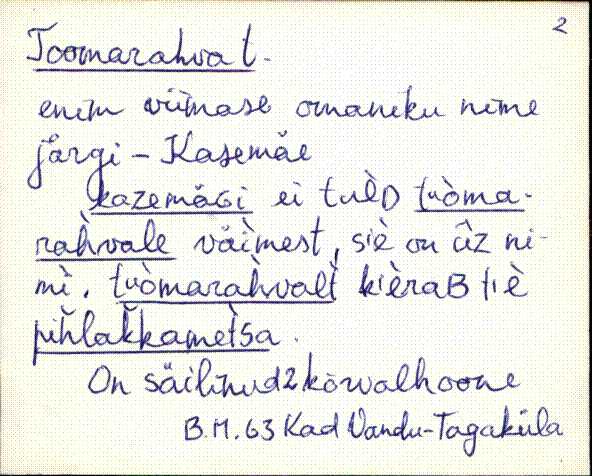 2
Toomarahva t.
enim viimase omaniku nime
järgi – Kasemäe
kazemäGi ei tulèD tuòma-
rahvale väìmest, siè on ûz ni-
mì. tuòmarahvalt kièraB tiè
pihlakkametsa.
On säilinud 2 kõrvalhoone
B.M. 63 Kad Vandu-Tagaküla